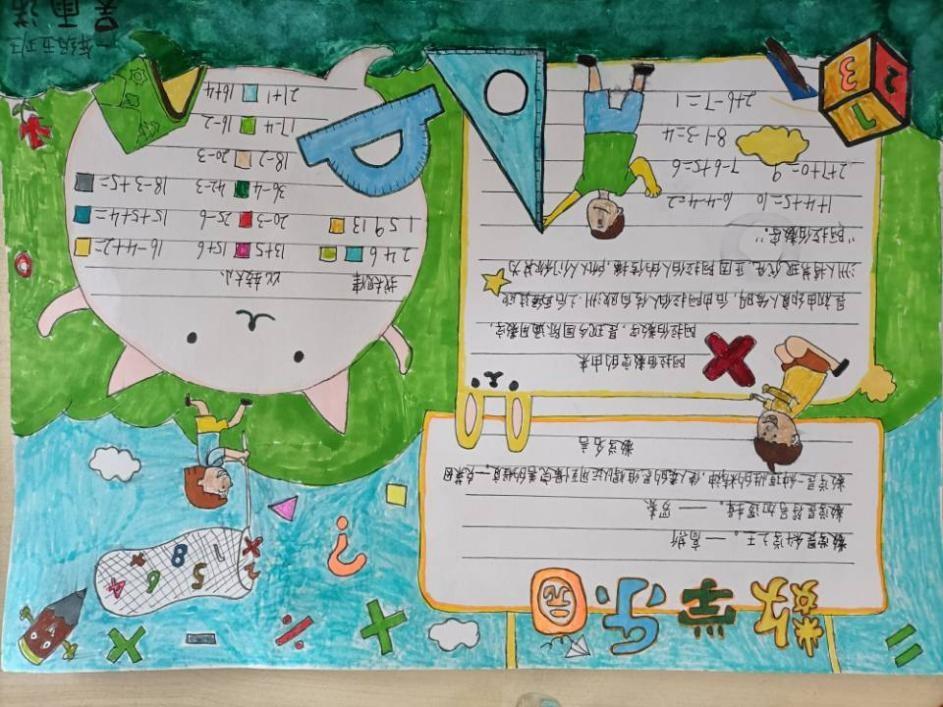 数学乐园
数学是科学之王。——高斯
数学是符号加逻辑。——罗素
数学是一种理性的精神，使人类的思维得以运用到最完善的程度。—克莱因
数学名言
阿拉伯数字的由来
阿拉伯数字，是现今国际通用数字，
最初由印度人发明，后由阿拉伯人传向欧洲，之后再经过欧
洲人将其现代化，正因阿拉伯人的传播，所以人们称其为
“阿拉伯数字”。
1+4+5=10 10-4-4=2
2+7+0=9 7-6+5=6
8-1-3=4
2+6-7=1
1 2 3
? 2 5 1 6 8 4
找规律 比较大小
2 4 6 13+5 15+6 16-4+2=
1 5 9 13 20-3 25-6 15+5+4=
36-4 42-3 18-3+5=
18-2 20-3
17-4 16-2
21+1 16+4
一年级五班
吴雨诺